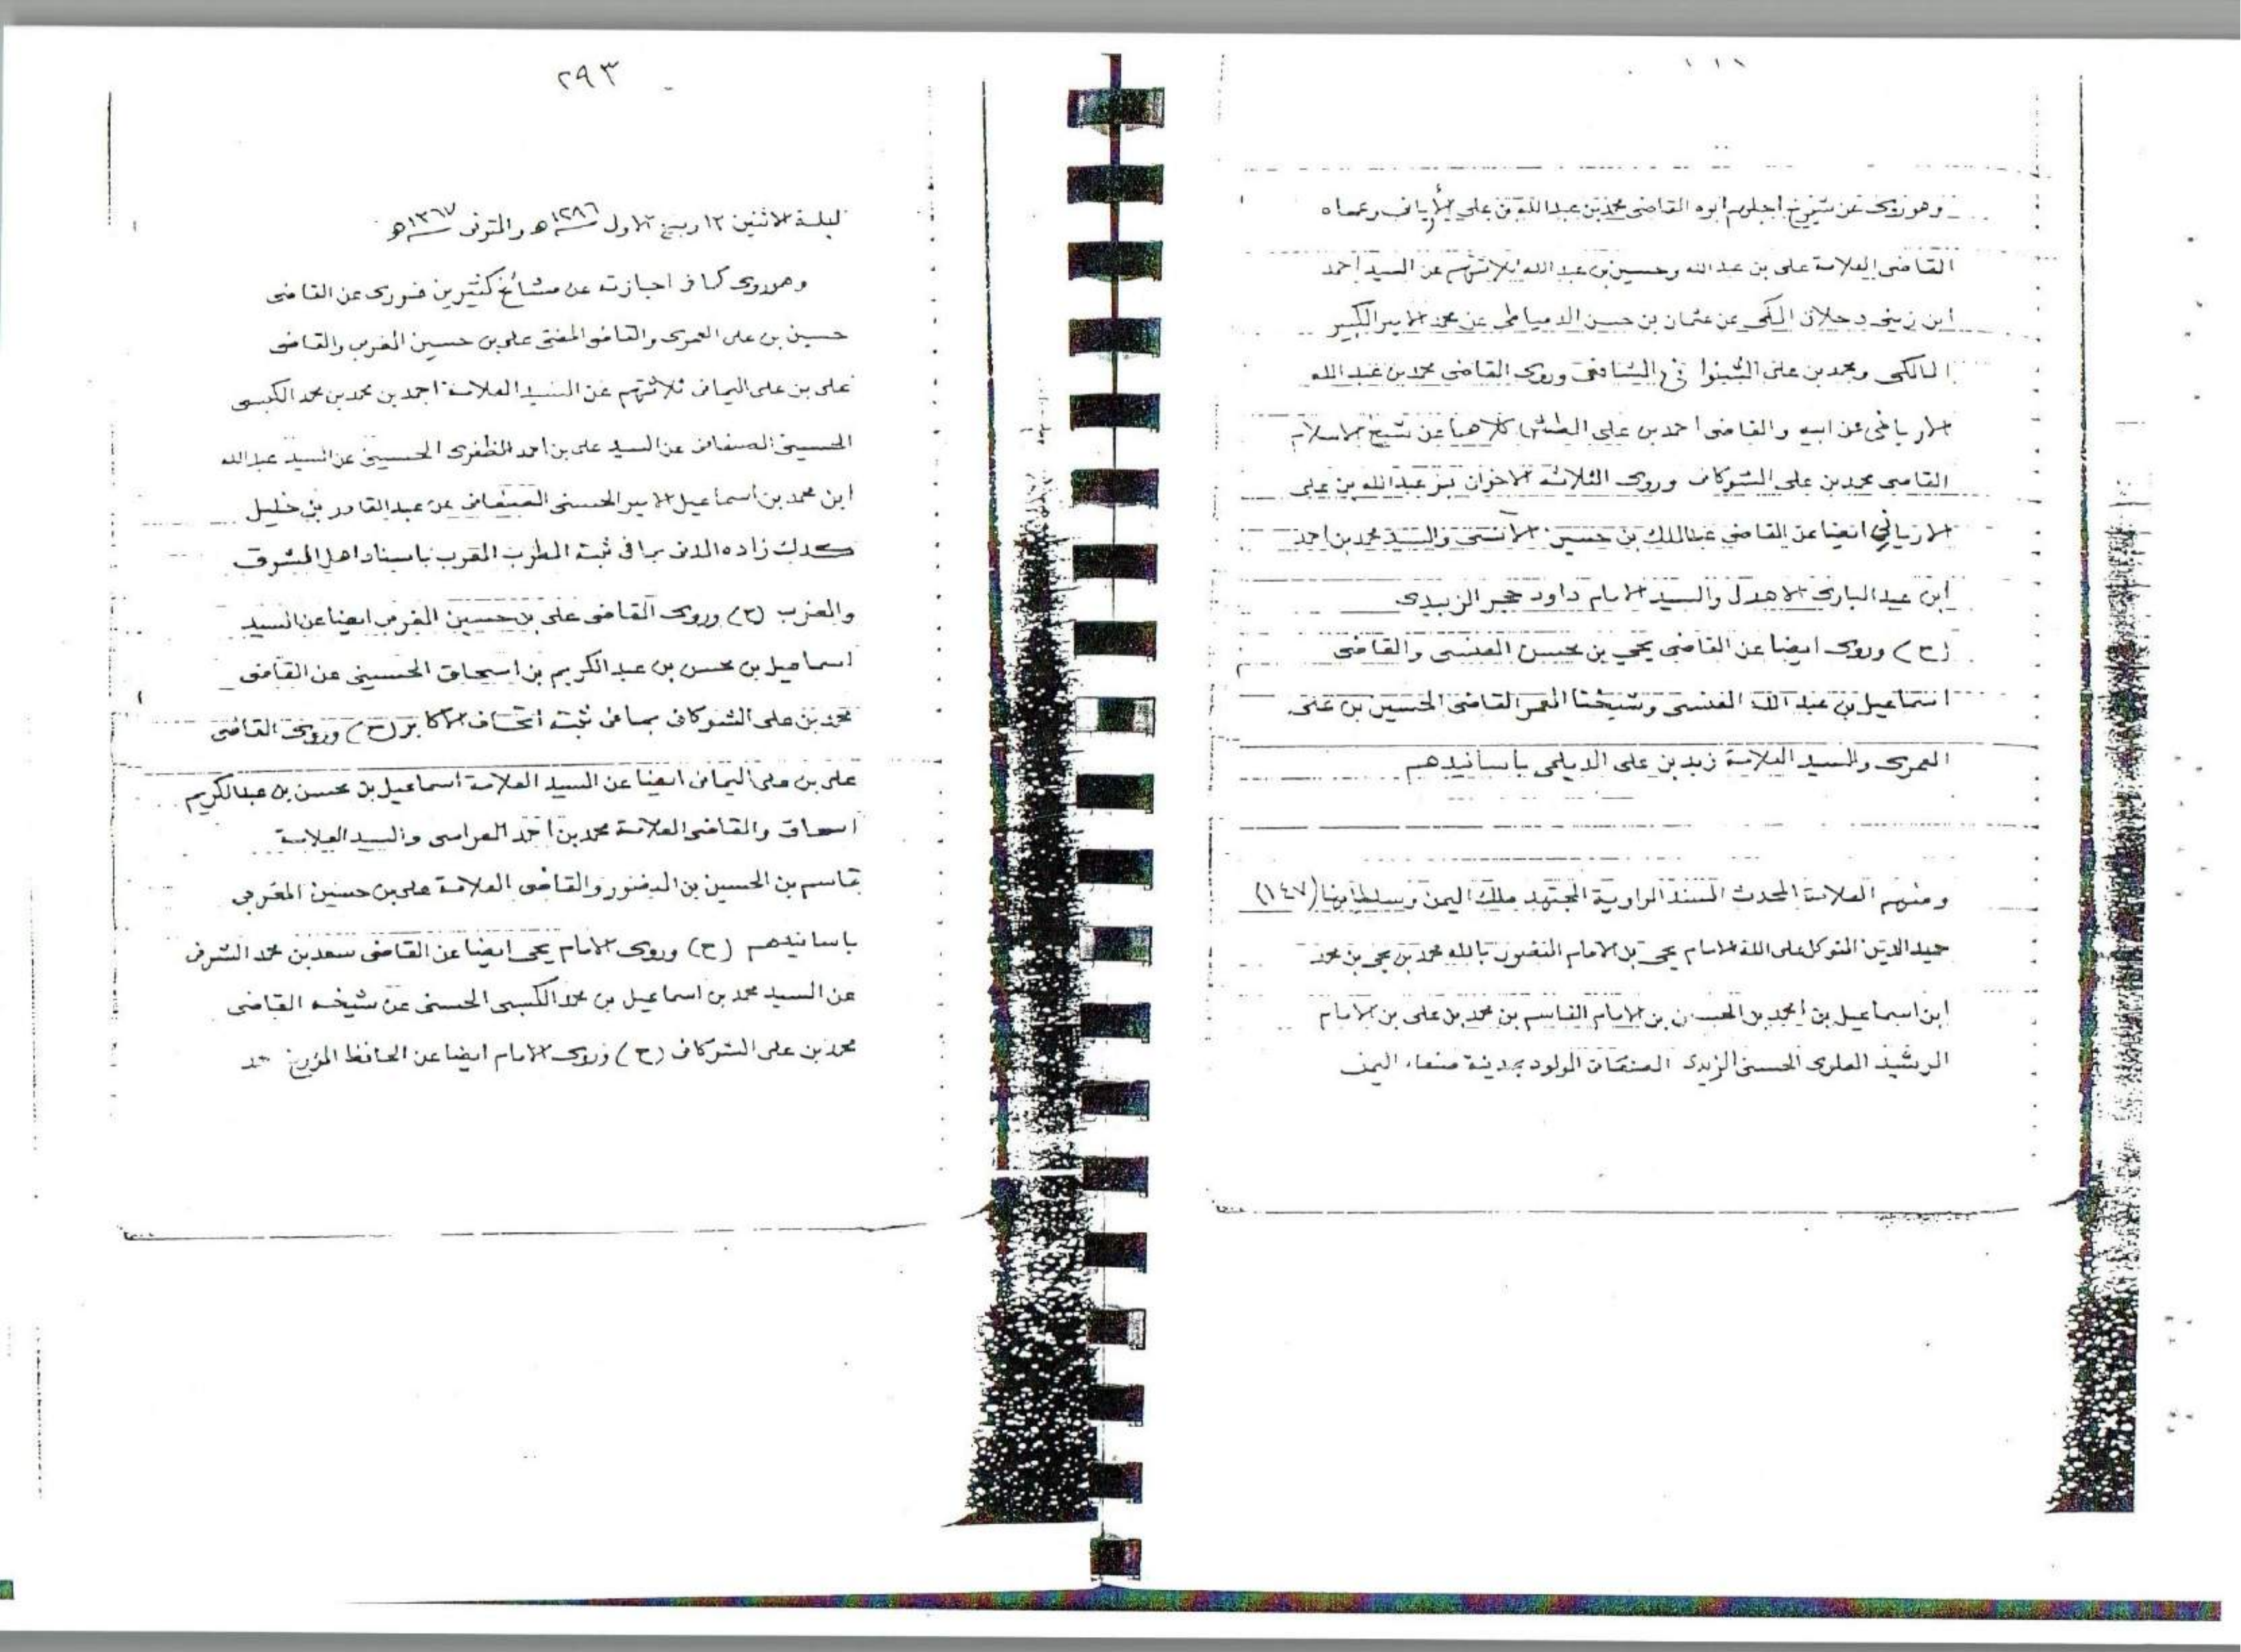 وهو يروى عن شيوخ اجلهم ابوه القاضى محمد بن عبدالله بن على الأريانى وعماه
القاضى العلامة على بن عبد الله وحسين بن عبد الله ثلاثتهم عن السيد احمد
ابن زينى دحلان المكى عن عثمان بن حسن الدمياطى عن محمد الامير الكبير
المالكى ومحمد بن على الشنوانى الشافعى وروى القاضى محمد بن عبد الله
الاريانى عن ابيه والقاضى احمد بن على الطشى كلاهما عن شيخ الاسلام
القاضى محمد بن على الشوكانى وروى الثلاثة الاخوان بنو عبدالله بن على
الاريانى ايضا عن القاضى عبدالملك بن حسين الآنسى والسيد محمد بن احمد
ابن عبد البارى الاهدل والسيد الامام داود حجر الزبيدى
(ح) وروى ايضا عن القاضى يحيى بن محسن العنسى والقاضى
اسماعيل بن عبد الله العنسى وشيخنا المعمر القاضى الحسين بن على
العمرى والسيد العلامة زيد بن على الديلمى باسانيدهم
ومنهم العلامة المحدث المسند الراوية المجتهد ملك اليمن وسلطانها (١٤٧)
حميد الدين المتوكل على الله الامام يحيى بن الامام المنصور بالله محمد بن يحيى بن محمد
ابن اسماعيل بن محمد بن الحسين بن الامام القاسم بن محمد بن على بن الامام
الرشيد العلوى الحسنى الزيدى الصنعانى المولود بمدينة صنعاء اليمن
٢٩٣
ليلة الاثنين ١٢ ربيع الاول ١٢٨٦ھ والمتوفى ١٣٦٧ھ
وهو يروى كما فى اجازته عن مشائخ كثيرين فروى عن القاضى
حسين بن على العمرى والقاضى المفتى على بن حسين المغربى والقاضى
على بن على اليمانى ثلاثتهم عن السيد العلامة احمد بن محمد بن محمد الكبسى
الحسينى الصنعانى عن السيد على بن احمد الظفرى الحسينى عن السيد عبد الله
ابن محمد بن اسماعيل الامير الحسنى الصنعانى عن عبد القادر بن خليل
كدك زاده المدنى بما فى ثبته المطرب المقرب باسناد اهل المشرق
والمغرب (ح) وروى القاضى على بن حسين المغربى ايضا عن السيد
اسماعيل بن محسن بن عبد الكريم بن اسحاق الحسينى عن القاضى
محمد بن على الشوكانى بما فى ثبته اتحاف الاكابر (ح) وروى القاضى
على بن على اليمانى ايضا عن السيد العلامة اسماعيل بن محسن بن عبد الكريم
اسحاق والقاضى العلامة محمد بن احمد العراسى والسيد العلامة
قاسم بن الحسين بن المنصور والقاضى العلامة على بن حسين المغربى
باسانيدهم (ح) وروى الامام يحيى ايضا عن القاضى سعد بن محمد الشرفى
عن السيد محمد بن اسماعيل بن محمد الكبسى الحسنى عن شيخه القاضى
محمد بن على الشوكانى (ح) وروى الامام ايضا عن الحافظ المؤرخ